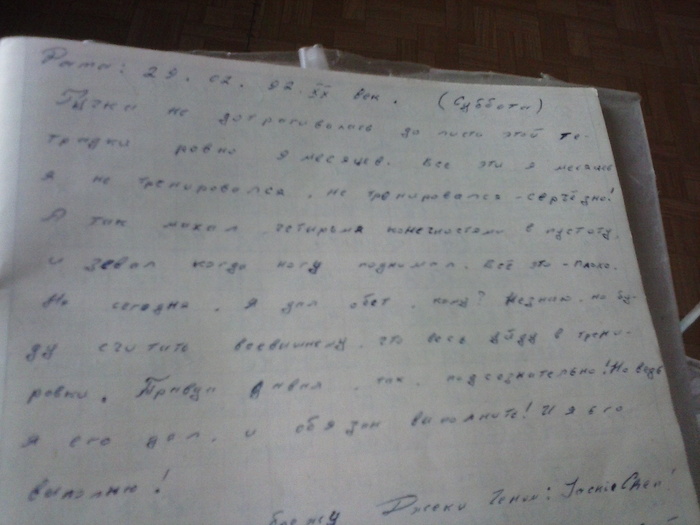 Дата: 29.02.92. XX век. (Суббота)
Ручка не дотрагивалась до листа этой те-
традки ровно 9 месяцев. Все эти 9 месяцев
я не тренировался, не тренировался - серьёзно!
А так махал четырьмя конечностями в пустоту,
и зевал когда ногу поднимал. Всё это - плохо.
Но сегодня, я дал обет, кому? Незнаю, но бу-
ду считать всевышнему, что весь уйду в трени-
ровки. дивня, так, подсознательно! Но ведь
я его дал, и обязан выполнить! И я его
выполню!
Джеки Чена: Jackie Chen!